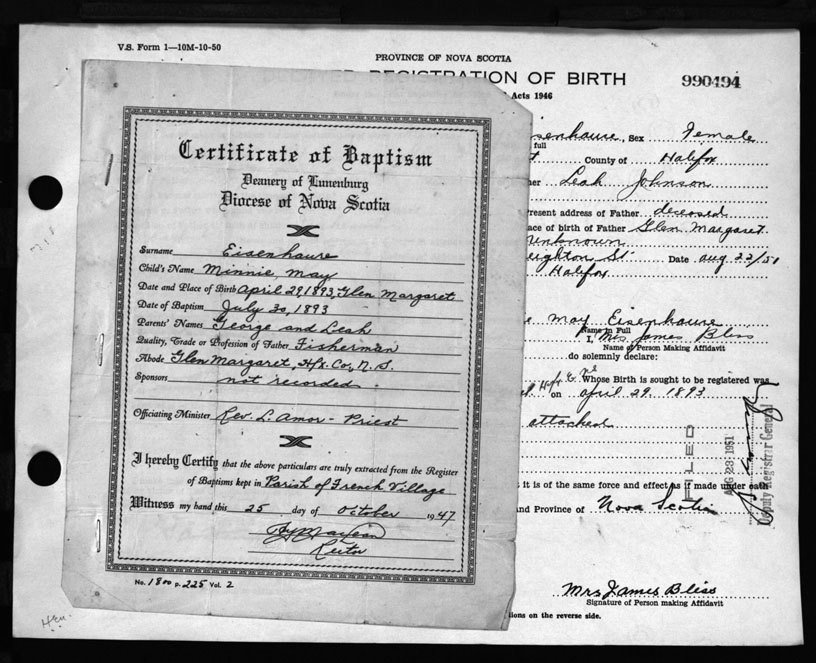 V.S. Form 1—10M-10-50
PROVINCE OF NOVA SCOTIA
REGISTRATION OF BIRTH
990494
Acts 1946
Certificate of Baptism
Deanery of Lunenburg
Diocese of Nova Scotia
Surname Eisenhaure
Child's Name Minnie, May
Date and Place of Birth April 29, 1893, Glen Margaret
Date of Baptism July 30, 1893
Parents' Names George and Leah
Quality, Trade or Profession of Father Fisherman
Abode Glen Margaret, Hfx. Co., N. S.
Sponsors not recorded
Officiating Minister Rev. L. Amor - Priest
I hereby Certify that the above particulars are truly extracted from the Register
of Baptisms kept in Parish of French Village
Witness my hand this 25 day of October 1947
Rector
No. 1800 P. 225 Vol. 2
isenhaure, Sex Female
full
County of Halifax
her Leah Johnson
resent address of Father deceased
ace of birth of Father Glen Margaret
Unknown
eighton St. Date Aug 22/51
Halifax
e May Eisenhaure
Name in Full
I, Mrs James Bliss
Name of Person Making Affidavit
do solemnly declare:
Whose Birth is sought to be registered was
on April 29. 1893
attached
t it is of the same force and effect as if made under oath
and Province of Nova Scotia
FILED
AUG 23 1951
Deputy Registrar General
Mrs James Bliss
Signature of Person making Affidavit
tions on the reverse side.